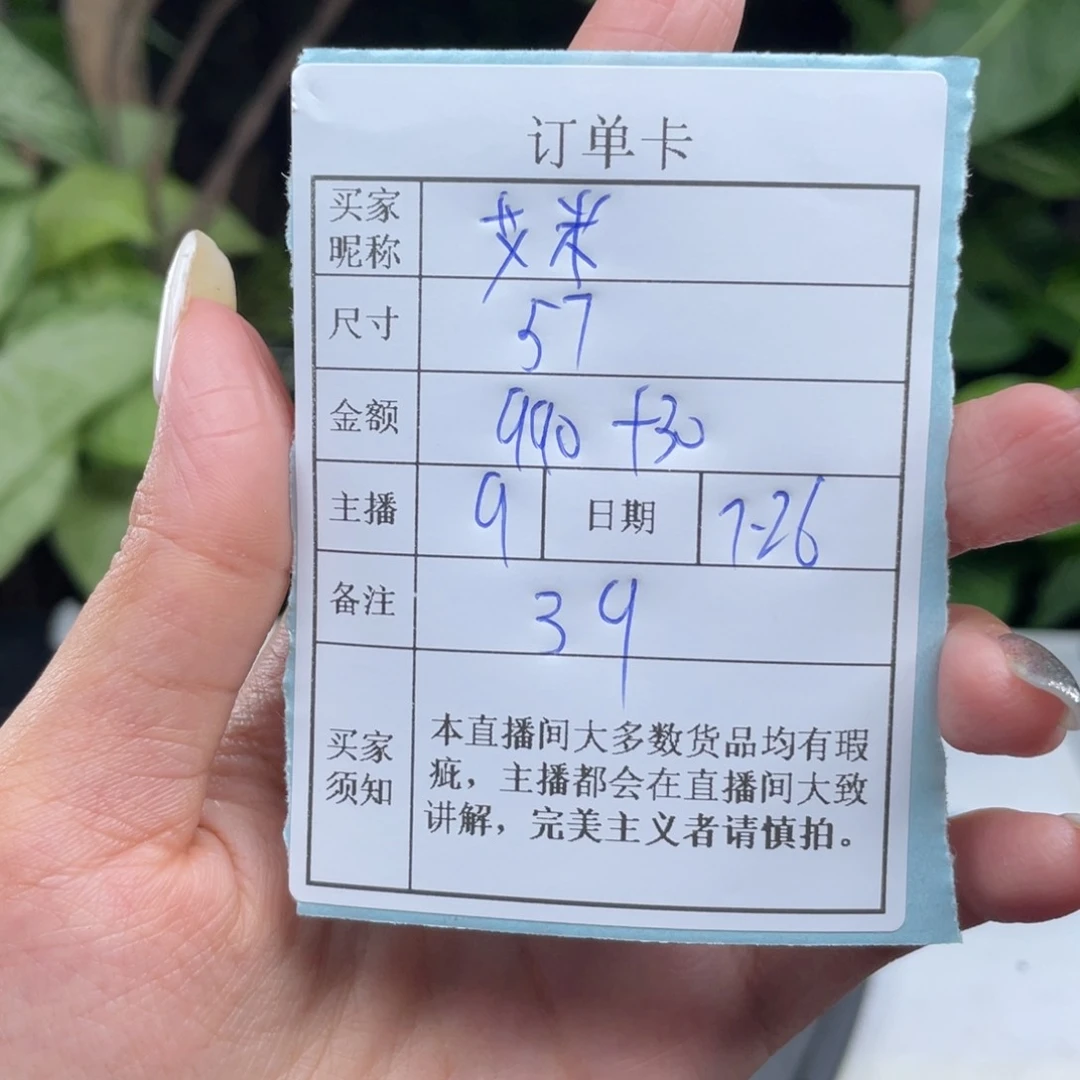 订单卡
买家
昵称
艾米
尺寸
57
金额
990 +30
主播
9
日期
7-26
备注
39
买家
须知
本直播间大多数货品均有瑕
疵，主播都会在直播间大致
讲解，完美主义者请慎拍。